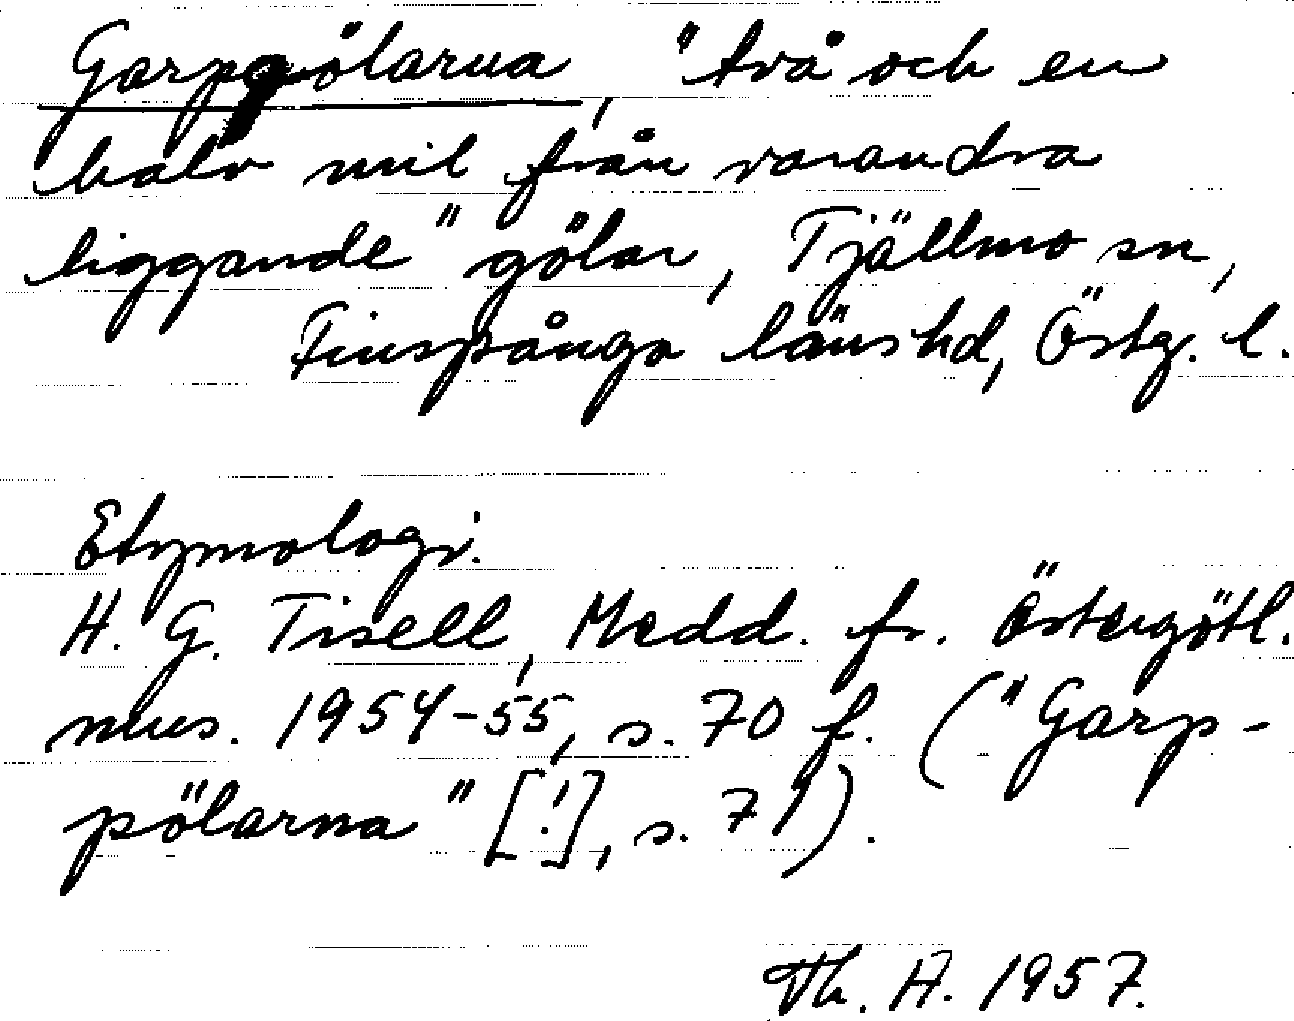 Garpgölarna, "två och en
halv mil från varandra
liggande" gölar, Tjällmo sn,
Finspånga länshd, Östg. l.
Etymologi.
H. G. Tisell, Medd. fr. Östergötl.
mus. 1954-55, s. 70 f. ("Garp-
pölarna" [!], s. 71).
Th. A. 1957.